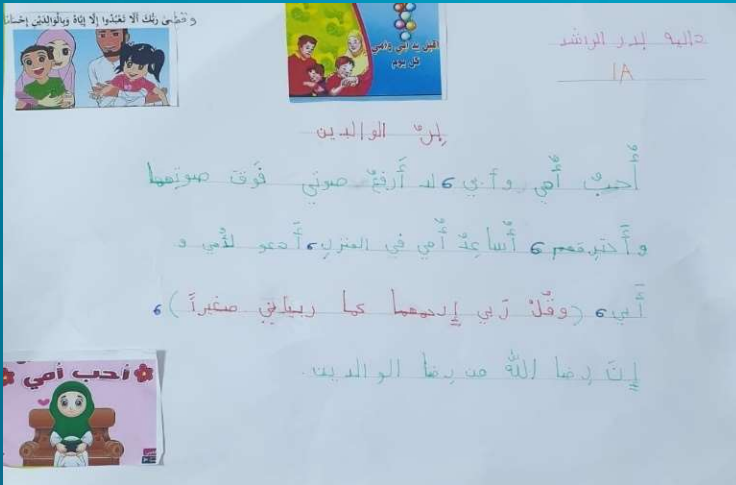 وقضى ربك ألا تعبدوا إلا إياه وبالوالدين إحسانا
أقبل يد أبي وأمي
كل يوم
دالية بدر الراشد
1A
بِرُ الوالدين
أُحبُ أُمي وأبي، لا أَرفعُ صوتي فَوق صوتهما
وأَحترمهم، أُساعِدُ أُمي في المنزل، أَدعو لأُمي و
أَبي، (وقُلْ رَبي إرحمهما كما ربياني صغيراً)،
إِنَ رِضا اللهُ من رِضا الوالدين.
أحب أمي